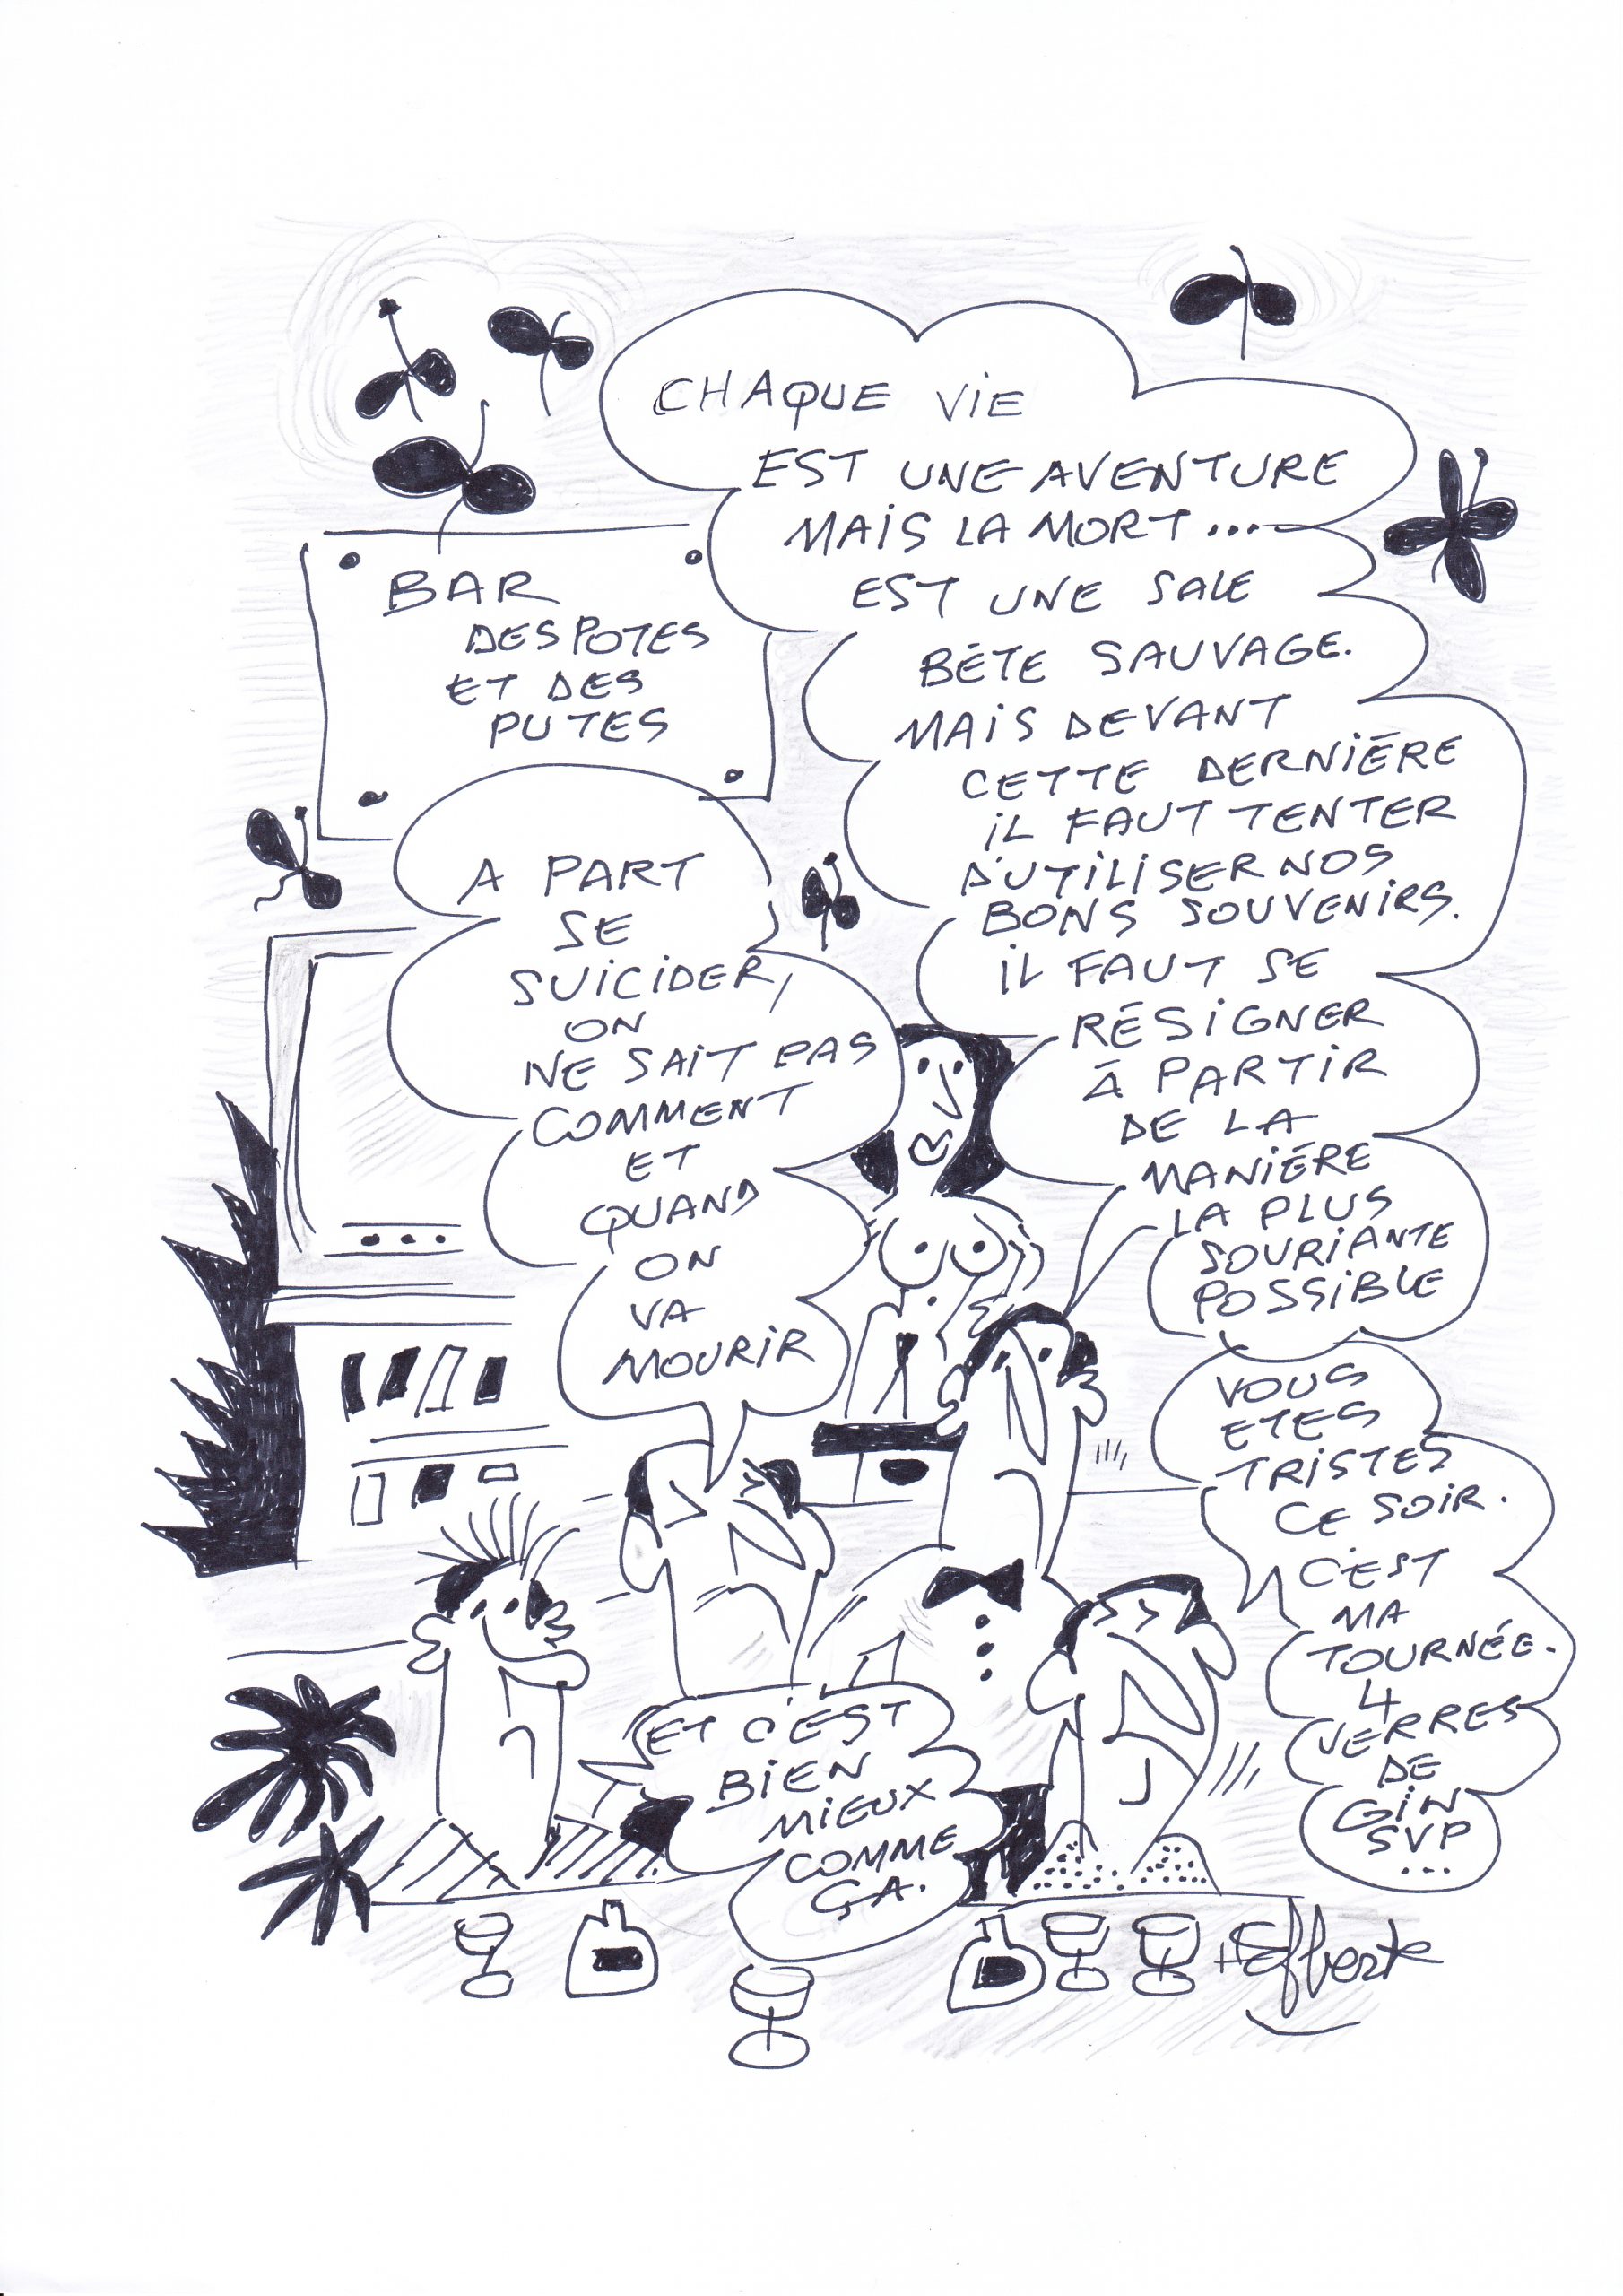 CHAQUE VIE
EST UNE AVENTURE
MAIS LA MORT...
EST UNE SALE
BÊTE SAUVAGE.
MAIS DEVANT
CETTE DERNIÉRE
IL FAUT TENTER
D'UTILISER NOS
BONS SOUVENIRS.
IL FAUT SE
RÉSIGNER
À PARTIR
DE LA
MANIÉRE
LA PLUS
SOURIANTE
POSSIBLE
BAR
DES POTES
ET DES
PUTES
A PART
SE
SUICIDER,
ON
NE SAIT PAS
COMMENT
ET
QUAND
ON
VA
MOURIR
ET C'EST
BIEN
MIEUX
COMME
ÇA.
VOUS
ETES
TRISTES
CE SOIR.
C'EST
MA
TOURNÉE.
4
VERRES
DE
GIN
SVP
...